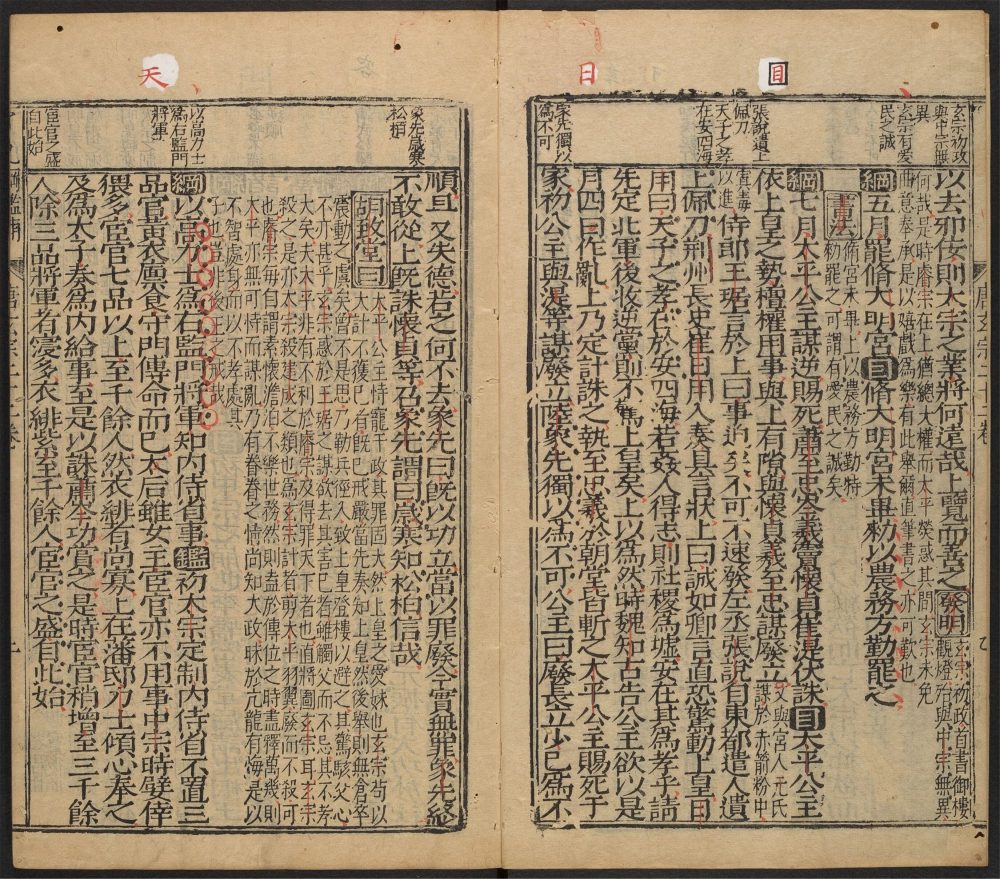 目
日
玄宗初政
與中宗無
異
玄宗有愛
民之誠
張說遺上
佩刀
天子之孝
在安四海
象先獨以
為不可
以去邪佞則太宗之業將何遠哉上覽而善之發明玄宗初政首書御樓
觀燈殆與中宗無異
何哉是時睿宗在上猶總大權而太平熒惑其間玄宗未免
曲意奉承是以嬉戲為樂有此舉爾直筆書之亦可歎也
綱五月罷脩大明宮目脩大明宮未畢勑以農務方勤罷之
書法脩宮未畢上以農務方勤特
勑罷之可謂有愛民之誠矣
綱七月太平公主謀逆賜死蕭至忠岑羲竇懷貞崔湜伏誅目太平公主
依上皇之勢擅權用事與上有隙與懷貞羲至忠謀廢立又與宮人元氏
謀於赤箭粉中
寘毒
以進侍郎王琚言於上曰事迫矣不可不速發左丞張說自東都遣人遺
上佩刀荊州長史崔日用入奏具言狀上曰誠如卿言直恐驚動上皇日
用曰天子之孝在於安四海若姦人得志則社稷為墟安在其為孝乎請
先定北軍後收逆黨則不驚上皇矣上以為然時魏知古告公主欲以是
月四日作亂上乃定計誅之執至忠羲於朝堂皆斬之太平公主賜死于
家初公主與湜等謀廢立陸象先獨以為不可公主曰廢長立少已為不
天
象先歲寒
松柏
以高力士
為右監門
將軍
宦官之盛
自此始
順且又失德若之何不去象先曰既以功立當以罪廢今實無罪象先終
不敢從上既誅懷貞等召象先謂曰歲寒知松柏信哉
胡致堂曰太平公主恃寵干政其罪固大然上皇之愛妹也玄宗苟以
大計不獲已者既已戒嚴當先奏知上皇然後舉則無倉卒
震動之虞矣曾不是思乃勒兵徑入致上皇登樓以避之其驚駭父心
不亦甚乎玄宗惑於王琚之謀欲去其害已者雖觸父而不忌其不孝
大矣夫太平非有不利於睿宗及得罪天下者也直將圖玄宗耳玄宗
殺之是亦太宗殺建成之類也為玄宗計者翦太平羽翼廢而不殺可
也睿宗每自謂素懷澹泊不樂世務然則盍於傳位之時盡釋萬幾則
太平亦無可恃而謀亂乃有眷眷之情尚知大政昧於亢龍有悔是以
不智處身而以不孝處其
子也豈不為後世之戒哉
綱以高力士為右監門將軍知內侍省事鑑初太宗定制內侍省不置三
品官黃衣廩食守門傳命而已太后雖女主宦官亦不用事中宗時嬖倖
猥多宦官七品以上至千餘人然衣緋者尚寡上在藩邸力士傾心奉之
及為太子奏為內給事至是以誅蕭岑功賞之是時宦官稍增至三千餘
人除三品將軍者寖多衣緋紫至千餘人宦官之盛自此始